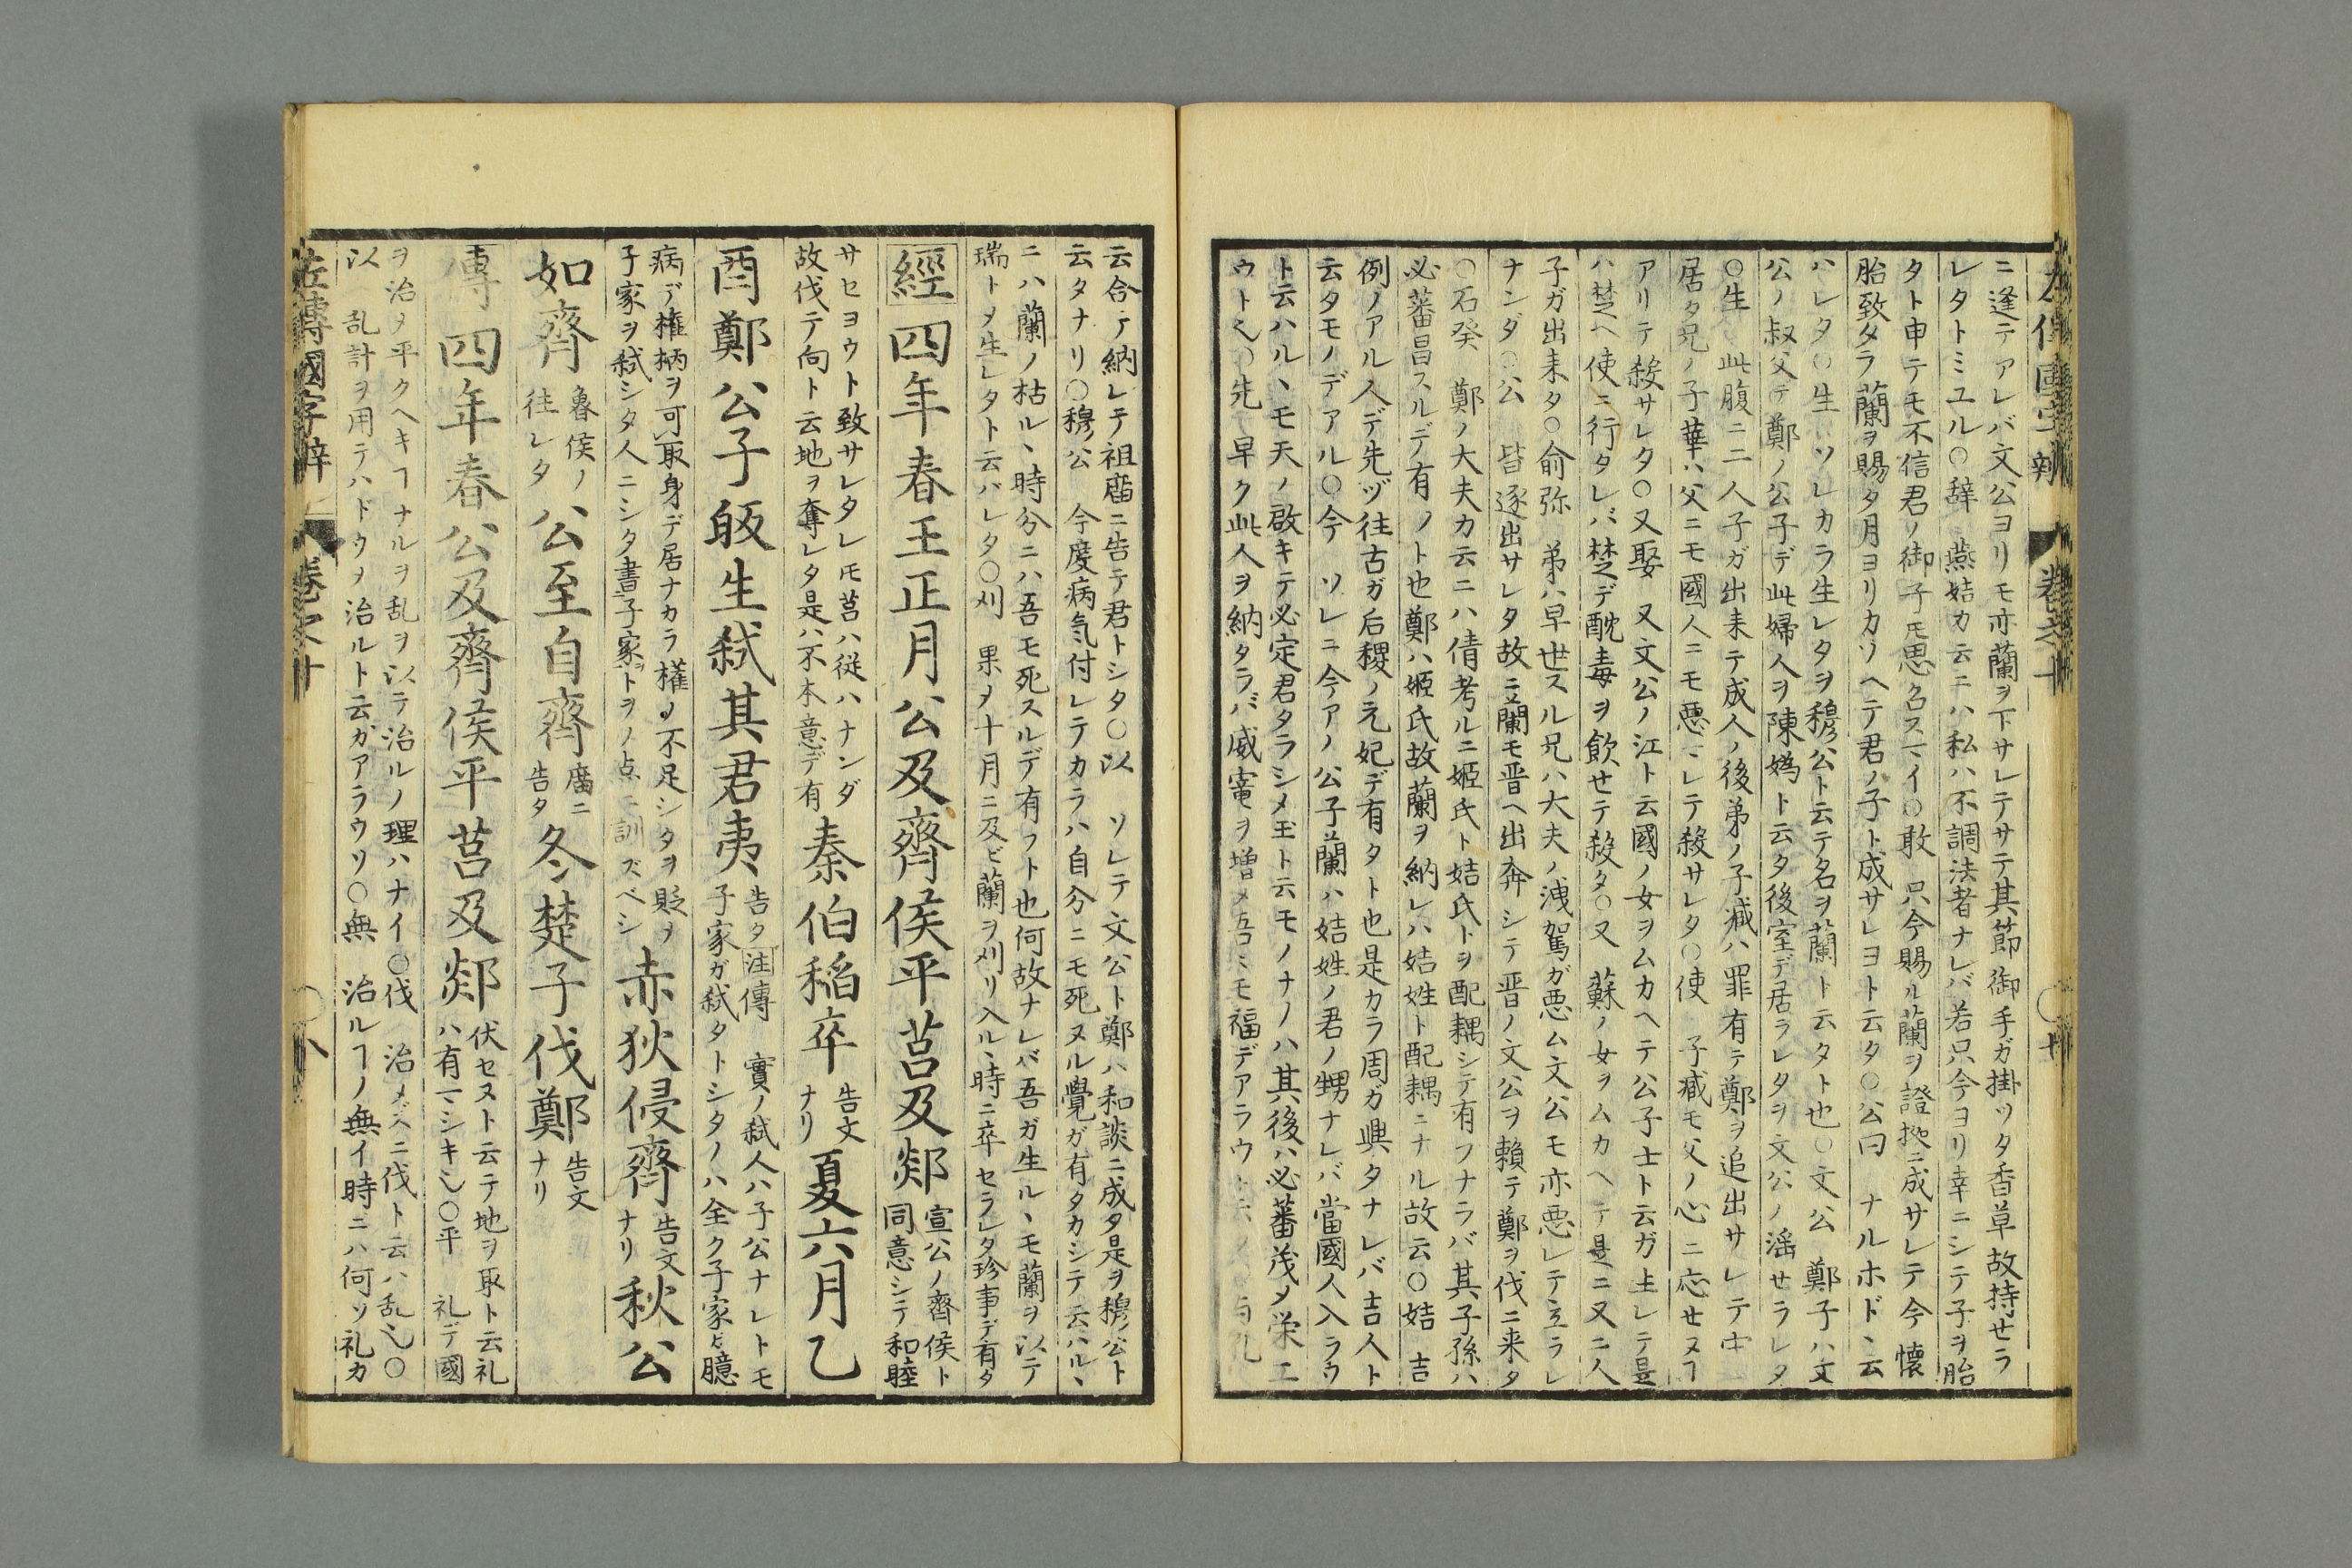 左傳國字辯 卷之十 十
ニ逢テアレバ文公ヨリモ亦蘭ヲ下サレテサテ其節御手ガ掛ツタ香草故持セラ
レタトミユル○辞 燕姞カ云ニハ私ハ不調法者ナレバ若只今ヨリ幸ニシテ子ヲ胎
タト申テモ不信君ノ御子𪜈思召スマイ○敢 只今賜ル蘭ヲ證拠ニ成サレテ今懐
胎致タラ蘭ヲ賜タ月ヨリカゾヘテ君ノ子ト成サレヨト云タ○公曰 ナルホドヽ云
ハレタ○生 ソレカラ生レタヲ穆公ト云テ名ヲ蘭ト云タト也○文公 鄭子ハ文
公ノ叔父デ鄭ノ公子デ此婦人ヲ陳嬀ト云タ後室デ居ラレタヲ文公ノ滛セラレタ
○生 此腹ニ二人子ガ出来テ成人ノ後弟ノ子臧ハ罪有テ鄭ヲ追出サレテ宋ニ
居タ兄ノ子華ハ父ニモ國人ニモ悪マレテ殺サレタ○使 子臧モ父ノ心ニ応セヌヿ
アリテ殺サレタ○又娶 又文公ノ江ト云國ノ女ヲムカヘテ公子士ト云ガ生レテ是
ハ楚ヘ使ニ行タレバ楚デ酖毒ヲ飲セテ殺タ○又 蘇ノ女ヲムカヘテ是ニ又二人
子ガ出来タ○俞弥 弟ハ早世スル兄ハ大夫ノ洩駕ガ悪ム文公モ亦悪レテ立ラレ
ナンダ○公 皆逐出サレタ故ニ蘭モ晋ヘ出奔シテ晋ノ文公ヲ頼テ鄭ヲ伐ニ来タ
○石癸 鄭ノ大夫カ云ニハ倩考ルニ姬氏ト姞氏トヲ配耦シテ有フナラバ其子孫ハ
必蕃昌スルデ有ノト也鄭ハ姬氏故蘭ヲ納レハ姞姓ト配耦ニナル故云○姞 吉
例ノアル人デ先ヅ往古ガ后稷ノ元妃デ有タト也是カラ周ガ興タナレバ吉人ト
云タモノデアル○今 ソレニ今アノ公子蘭ハ姞姓ノ君ノ甥ナレバ當國人入ラウ
ト云ハルヽモ天ノ啟キテ必定君タラシメ玉ト云モノナノハ其後ハ必蕃茂メ栄エ
ウト也○先 早ク此人ヲ納タラバ威寵ヲ增メ吾ニモ福デアラウト云
云合テ納レテ祖廟ニ告テ君トシタ○以 ソレテ文公ト鄭ハ和談ニ成タ是ヲ穆公ト
云タナリ○穆公 今度病気付レテカラハ自分ニモ死ヌル覺ガ有タカシテ云ハルヽ
ニハ蘭ノ枯ルヽ時分ニハ吾モ死スルデ有フト也何故ナレバ吾ガ生ルヽモ蘭ヲ以テ
瑞トヲ生レタト云バレタ○刈 果ヲ十月ニ及ビ蘭ヲ刈リ入ルヽ時ニ卒セラレタ珍事デ有タ
經四年春王正月公及齊侯平莒及郯 宣公ノ齊侯ト同意シテ和睦
サセヨウト致サレタレ𪜈莒ハ従ハナンダ故伐テ向ト云地ヲ奪レタ是ハ不本意デ有 秦伯稲卒 告文ナリ 夏六月乙
酉鄭公子皈生弑其君夷 告タ注傳 實ノ弑人ハ子公ナレトモ子家ガ弑タトシタノハ全ク子家ヶ臆
病デ権柄ヲ可取身デ居ナカラ權ノ不足シタヲ貶ヲ子家ヲ弑シタ人ニシタ書子家ヲトヲノ点ニ訓ズベシ 赤狄侵齊 告文ナリ 秋公
如齊 魯侯ノ往レタ 公至自齊 廣ニ告タ 冬楚子伐鄭 告文ナリ
傳四年春公及齊侯平莒及郯 伏セヌト云テ地ヲ取ト云礼ハ有マシキ也○平 礼デ國
ヲ治タ平クヘキヿナルヲ乱ヲ以テ治ルノ理ハナイ○伐 治メズニ伐ト云ハ乱也○
以 乱計ヲ用テハドウヲ治ルト云ガアラウソ○無 治ルヿノ無イ時ニハ何ソ礼カ
左傳國字辯 卷之十 八